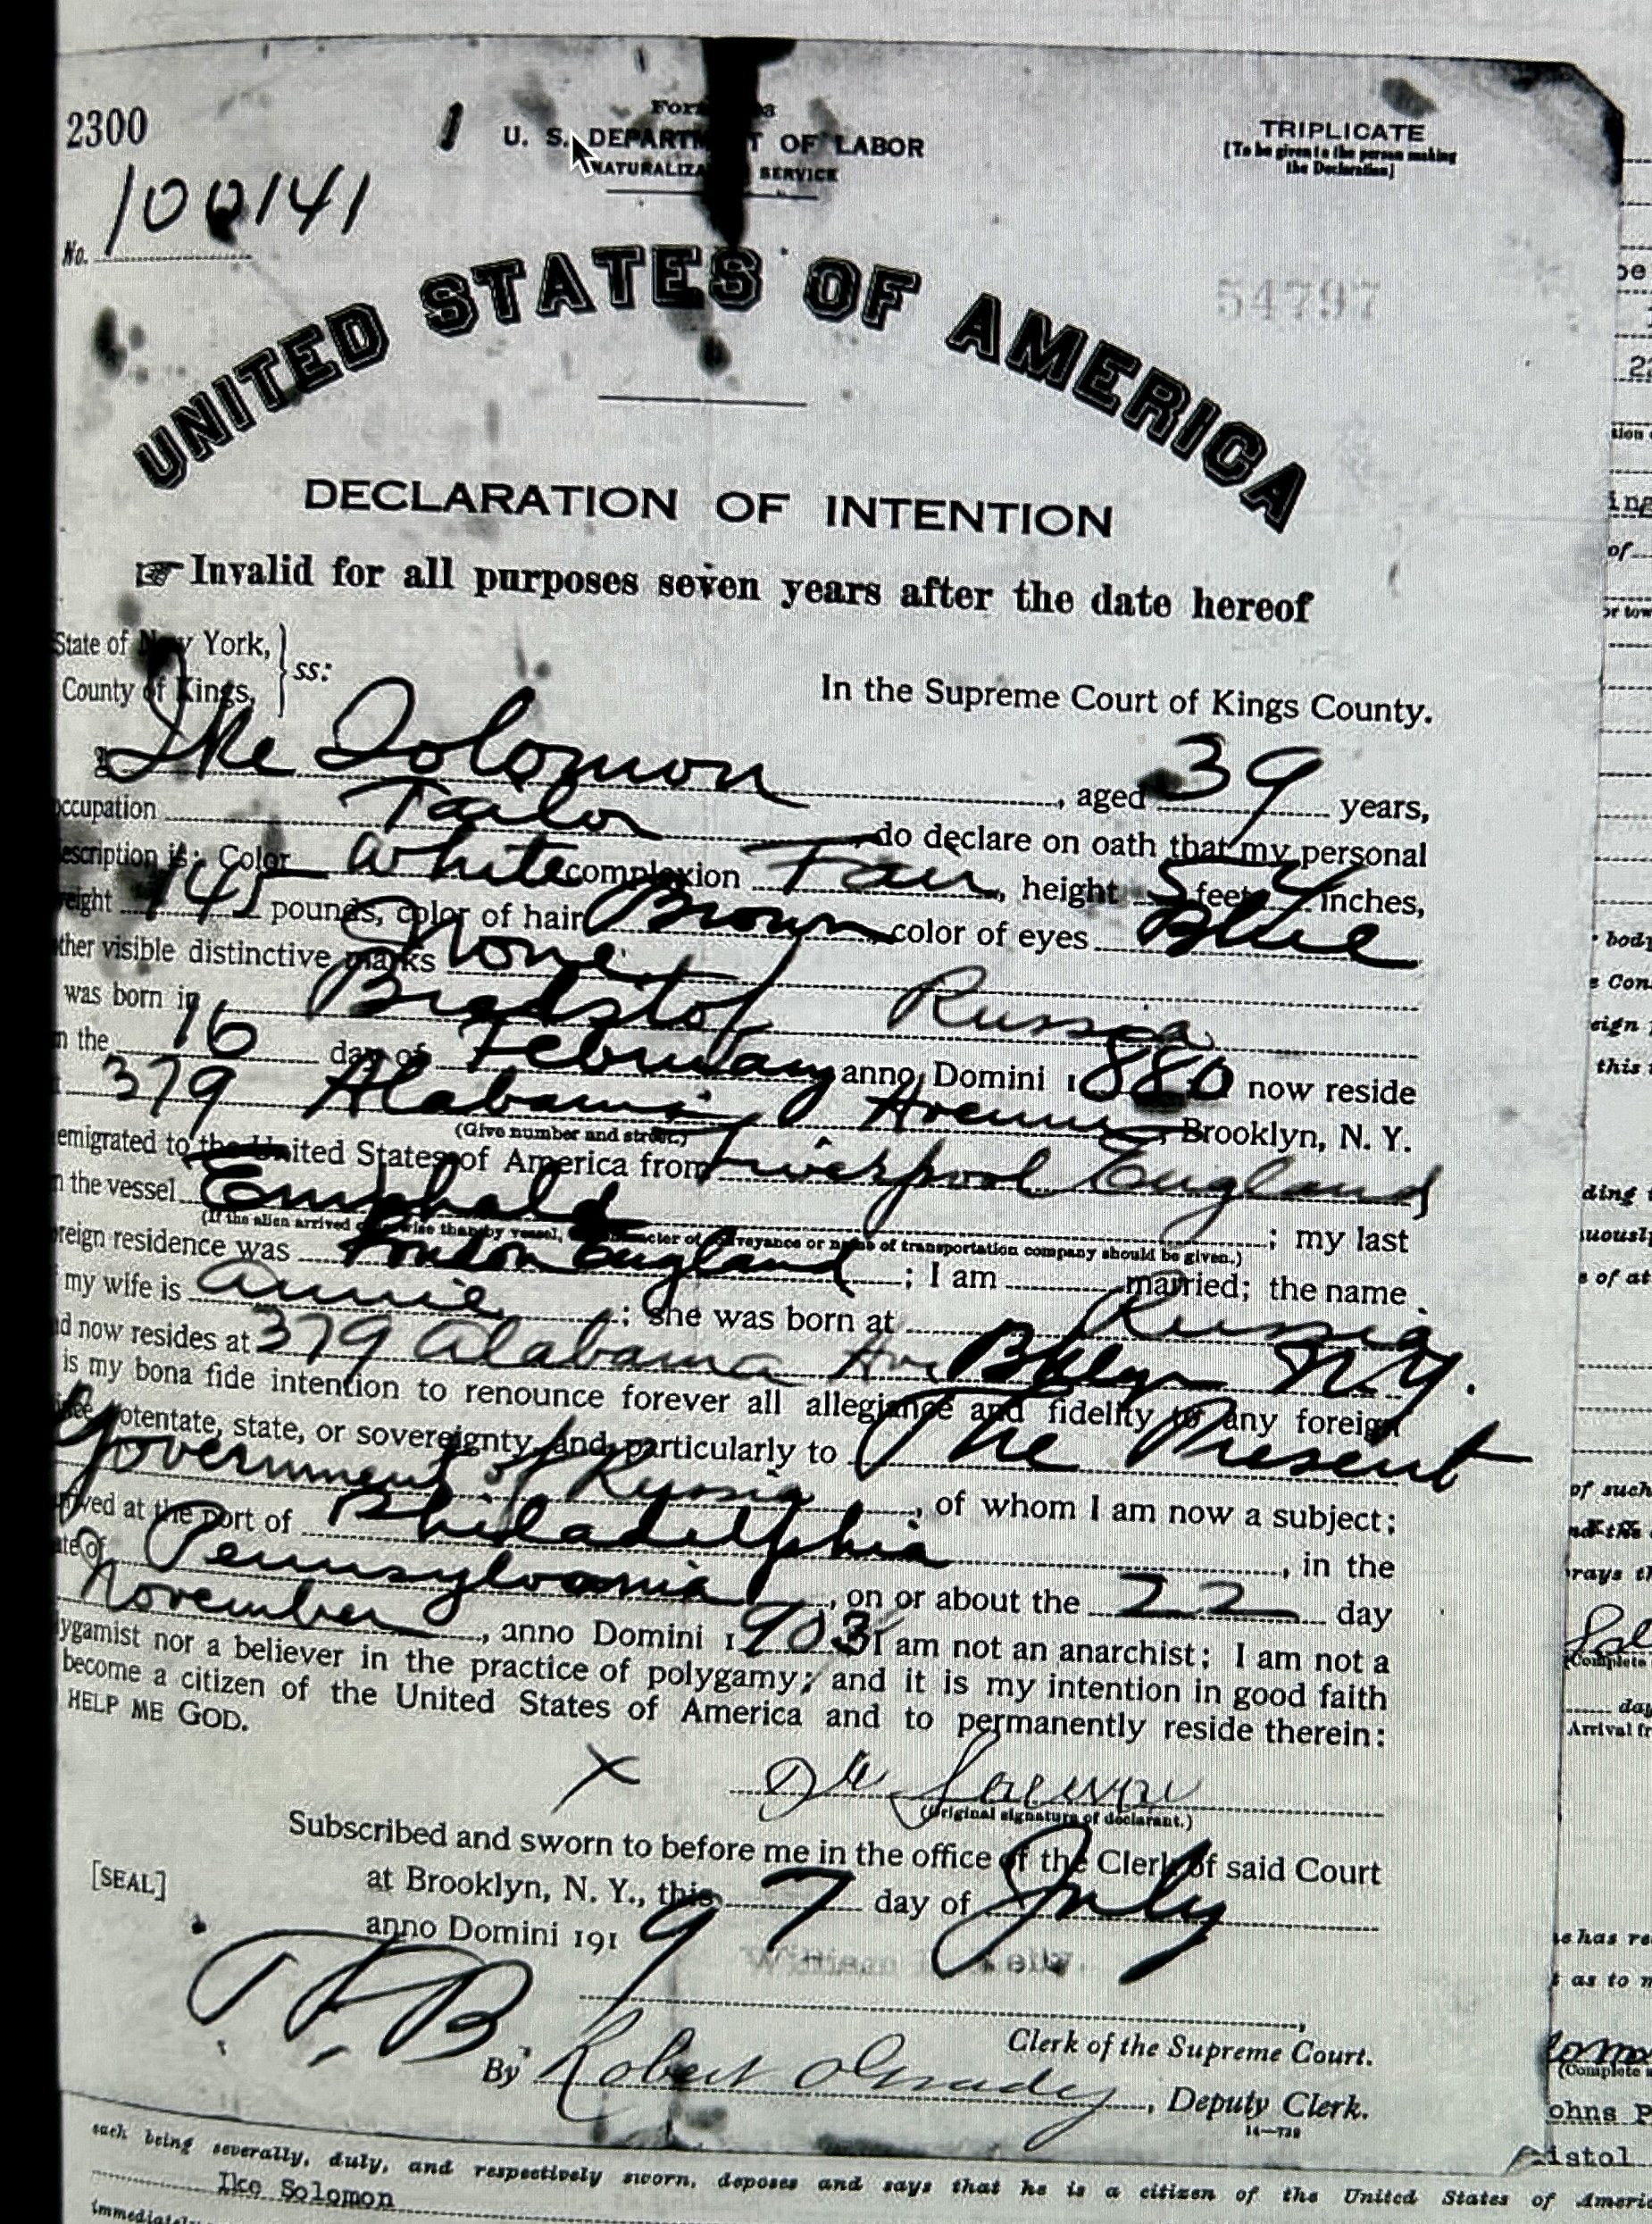 2300
U. S. DEPARTM T OF LABOR
TRIPLICATE
[To be given to the person making
the Declaration]
NATURALIZA SERVICE
No. 100141
54797
UNITED STATES OF AMERICA
DECLARATION OF INTENTION
☞ Invalid for all purposes seven years after the date hereof
State of New York,
County of Kings, } ss:
In the Supreme Court of Kings County.
Ike Solomon, aged 39 years,
occupation Tailor do declare on oath that my personal
description is: Color White complexion Fair, height 5 feet 4 inches,
weight 145 pounds, color of hair Brown color of eyes Blue
ther visible distinctive marks None
was born in Bradstof Russia
n the 16 day of February anno Domini 1880 now reside
379 Alabama Avenue, Brooklyn, N. Y.
(Give number and street.)
emigrated to the United States of America from Liverpool England
n the vessel
(If the alien arrived otherwise than by vessel, character of conveyance or name of transportation company should be given.)
; my last
reign residence was London England; I am married; the name
my wife is Annie; she was born at Russia
d now resides at 379 Alabama Ave Bklyn N.Y.
is my bona fide intention to renounce forever all allegiance and fidelity to any foreign
potentate, state, or sovereignty, and particularly to The Present
Government of Russia, of whom I am now a subject;
ived at the port of Philadelphia, in the
ate of Pennsylvania, on or about the 22 day
November, anno Domini 1903 I am not an anarchist; I am not a
lygamist nor a believer in the practice of polygamy; and it is my intention in good faith
become a citizen of the United States of America and to permanently reside therein:
HELP ME GOD.
X
(Original signature of declarant.)
Subscribed and sworn to before me in the office of the Clerk of said Court
[SEAL] at Brooklyn, N. Y., this 7 day of July
anno Domini 1919
Clerk of the Supreme Court.
By Robert O'Grady, Deputy Clerk.
14—739
each being severally, duly, and respectively sworn, deposes and says that he is a citizen of the United States of Ameri
Ike Solomon
immediately